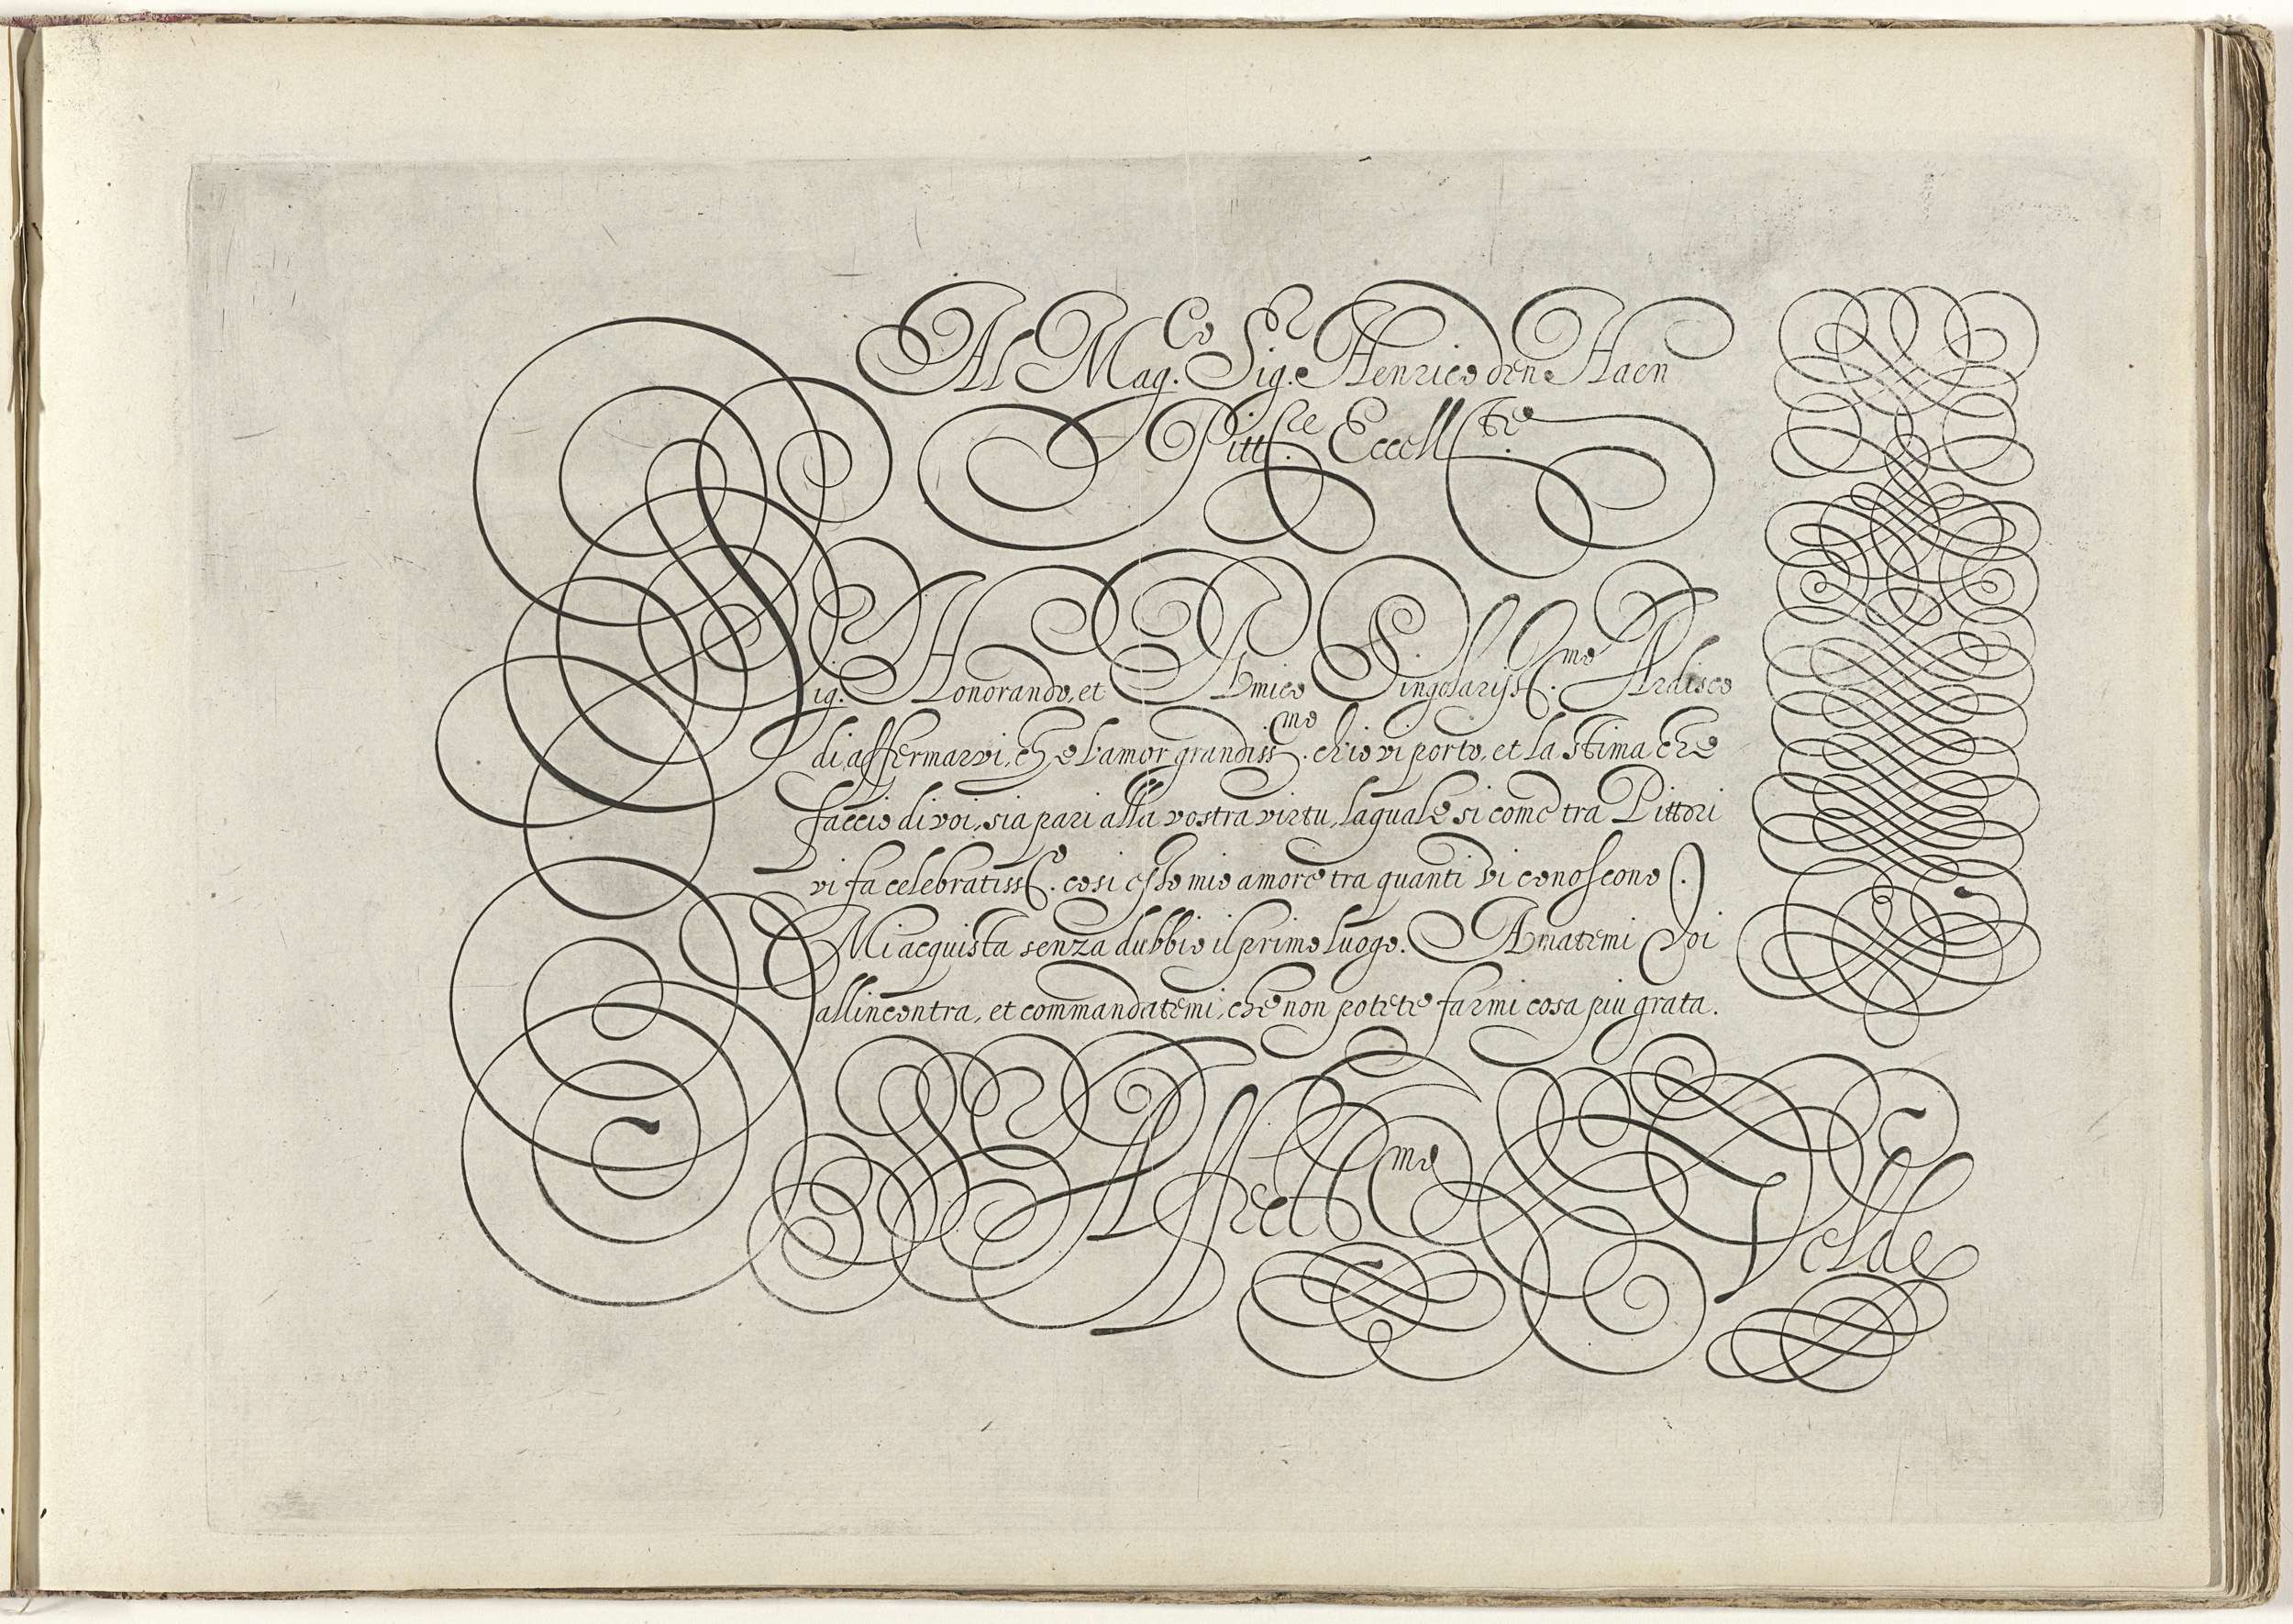 Al Mag.co Sig.r Henrico den Haen
Pitt.re Eccell.te
Sig. Honorando, et Amico Singolariss.mo Ardisco
di affermarvi, che l'amor grandiss.mo ch'io vi porto, et la stima che
faccio di voi, sia pari alla vostra virtu, laquale si come tra Pittori
vi fa celebratiss. cosi esso mio amore tra quanti vi conoscono
Mi acquista senza dubbio il primo luogo. Amatemi Voi
allincontra, et commandatemi, che non potete farmi cosa piu grata.
Affett.mo Velde